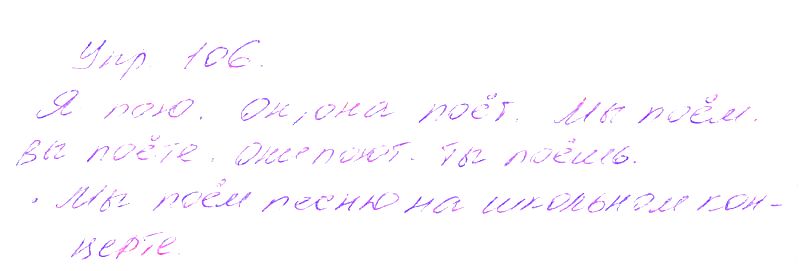 Упр 106.
Я пою. Он, она поёт. Мы поём.
Вы поёте. Они поют. Ты поёшь.
. Мы поём песню на школьном кон-
церте.